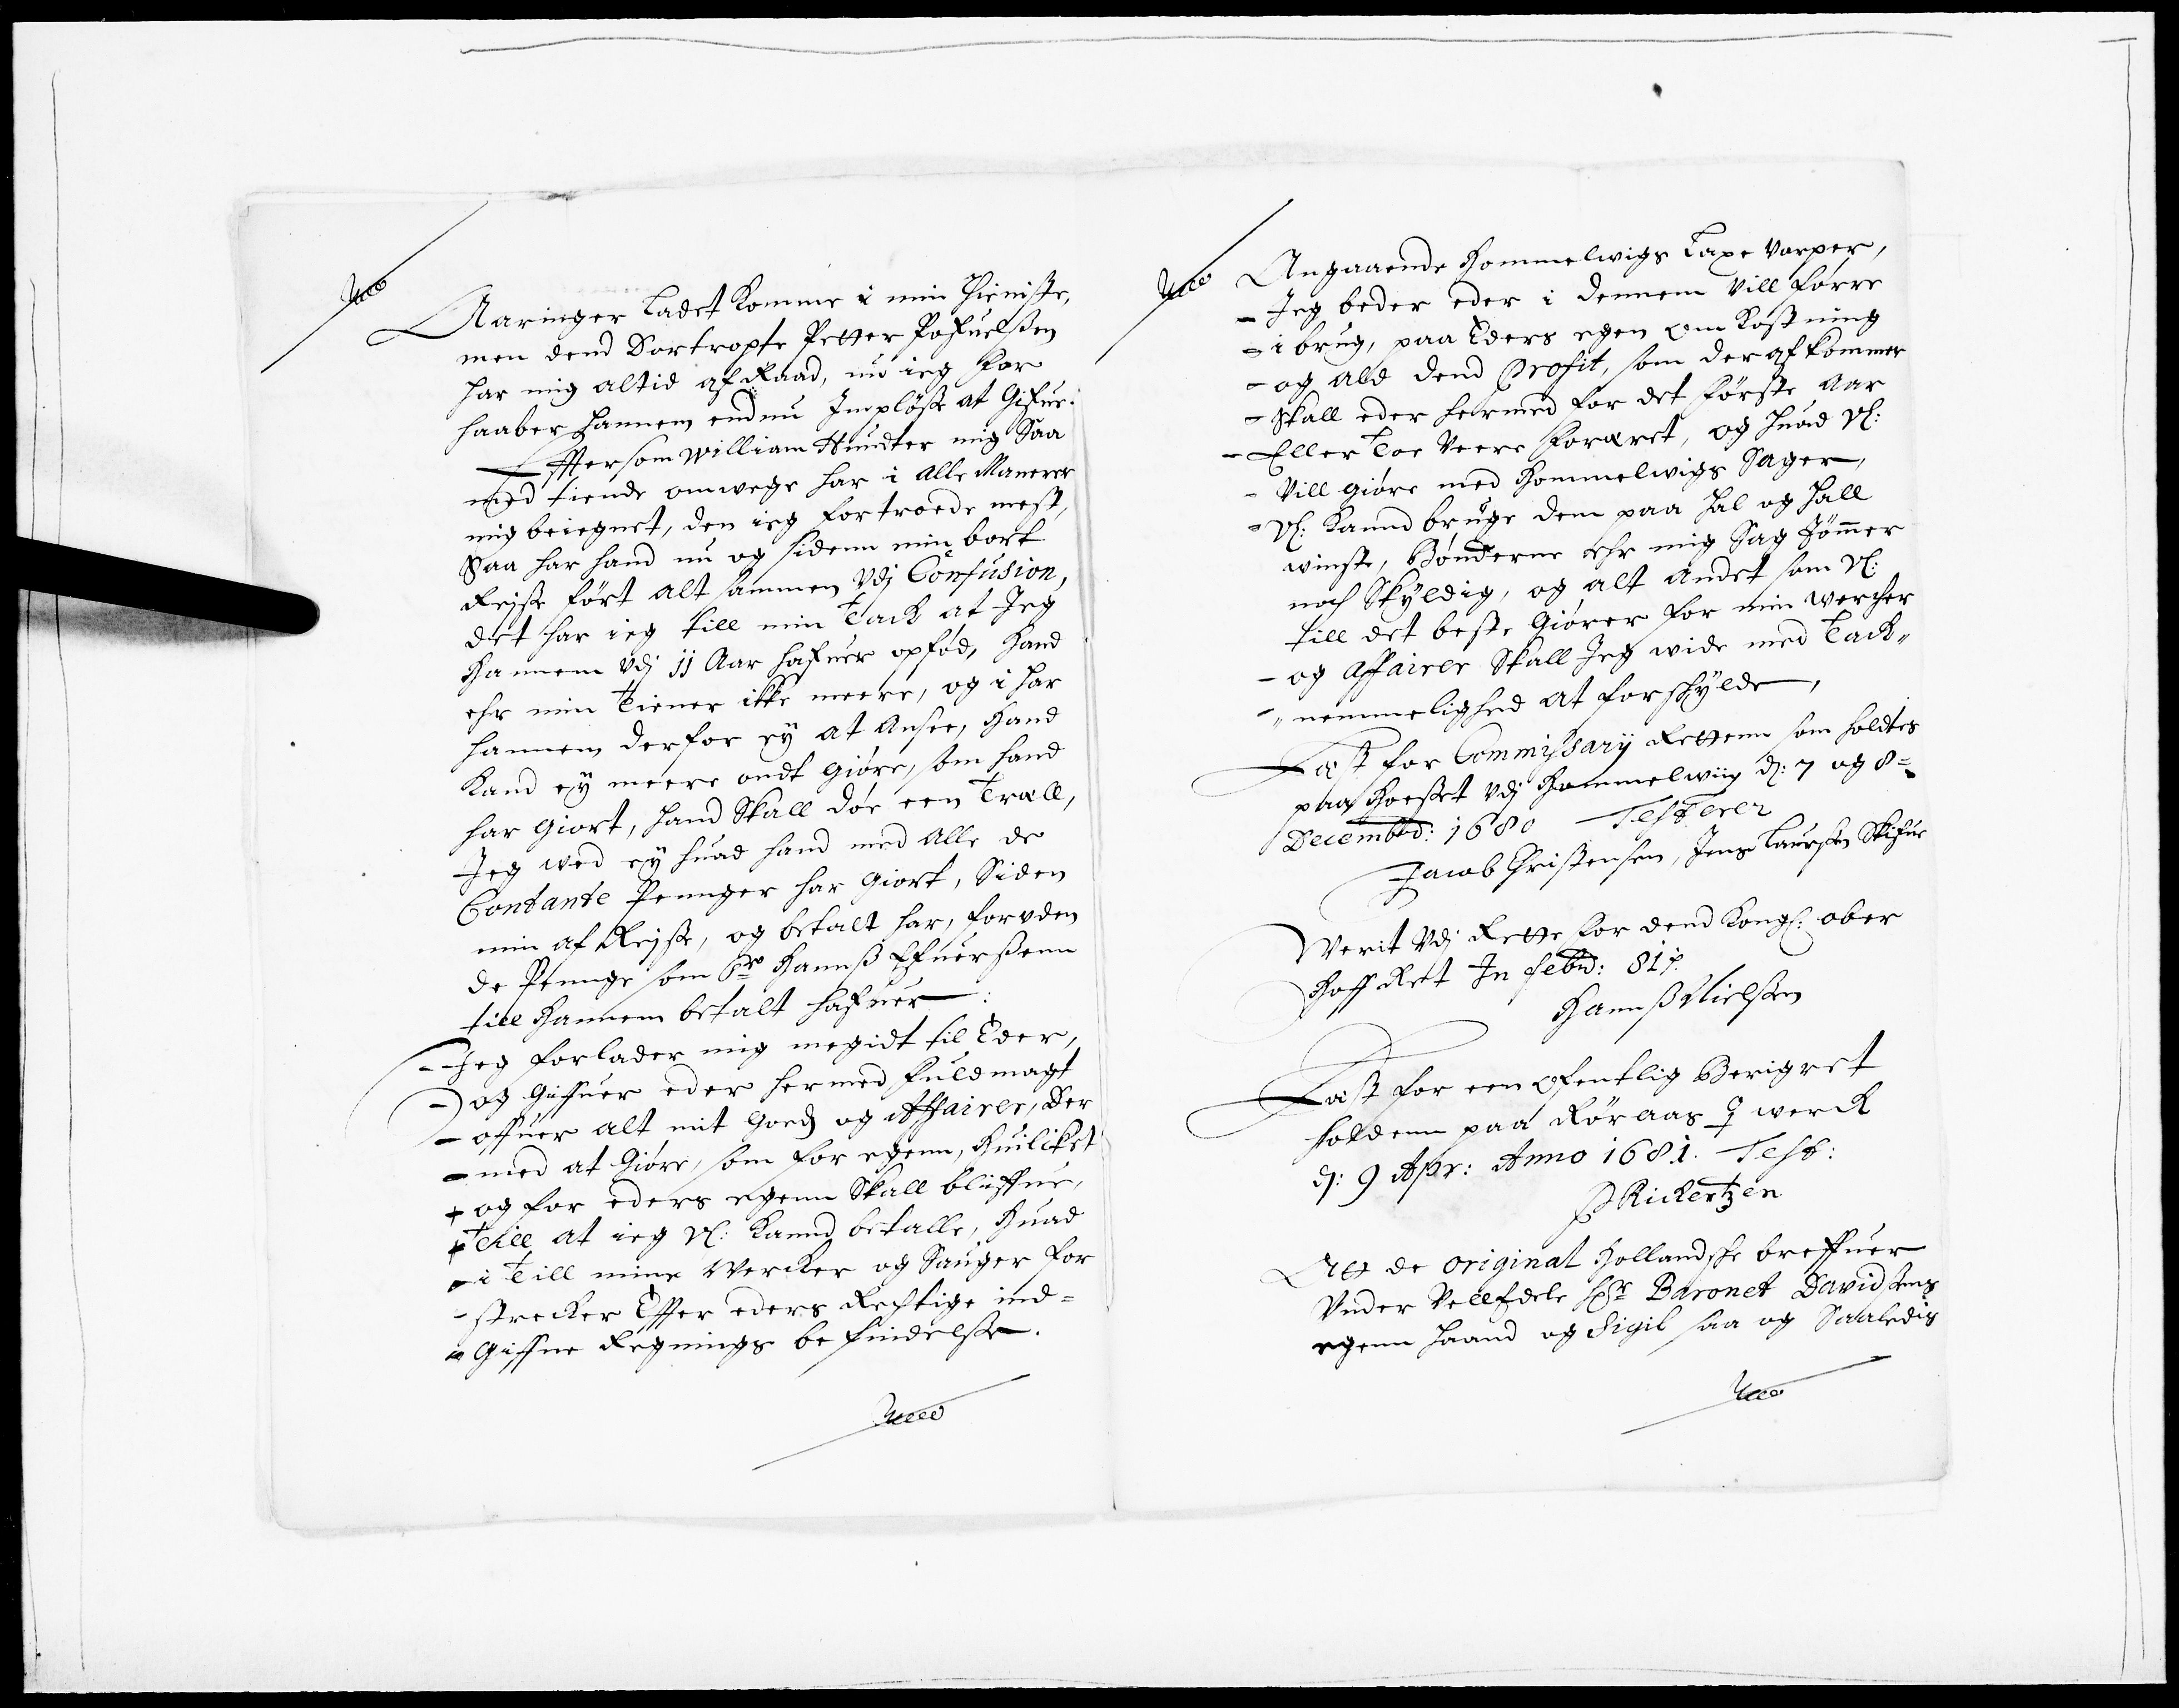 Aaringer Ladet Komme i min Thieniste,
men dend Dortropte Petter Pofuelßen
har mig altid af Raad, nu ieg for
haaber hannem endnu Impløße at Gifue.
Effter som William Hundter mig Saa
med tiende omwege har i Alle Manerer
mig beiegnet, den ieg fortroede mest,
Saa har hand nu og sidenn min bort
Reisse ført alt sammen Vdj Confusion,
det har ieg till min Tack at Jeg
Hannem Vdj jj Aar hafuer opfød, Hand
ehr min Tiener ikke meere, og i har
hannem derfor eÿ at Ansee, Hand
Kand eÿ meere ondt Giøre, som hand
har Giort, hand Skall døe een Træll,
Jeg wed eÿ huad hand med Alle de
Contante Penger har Giort, Siden
min af Reisse, og betalt har, foruden
de Penge som Sr Hannß Ifuerßenn
till Hannem betalt hafuer:
Jeg forlader mig megidt til Eder,
og Giffuer eder hermed fuldmagt
offuer Alt mit Goeds og Affairer, Der
med at Giøre, som for egenn, Huilcket
og for eders egenn Skall bliffue,
Till at ieg Vl: Kannd betalle, Huad
i Till mine Wercker og Sauger for
strecker Effter eders Rechtige ind=
Giffne Regnings befindelße.

Angaaende Hommelwigs Laxe Varper,
Jeg beder eder i dennem Vill førre
i brug, paa Eders egen omKostning
og Ald dend Profit, som der af kommer
Skall eder hermed for det Første Aar
Eller Toe Veere foræret, og huad Vl:
Vill giøre med Hommelwigs Sager,
Vl: Kannd bruge dem paa hal og Hall
winste, Bønderne ehr mig Sag Tømer
noch Skÿldig, og alt andet som Vl:
till det beste Giører for min wercher
og Affairer Skall Jeg wide med Tack„
„nemmelighed at forskÿlde,
Læst for Commissarij Rettenn som holdtes
paa Hoeßet Vdj Hommelwiig d: 7 og 8=
Decembrd: 1680 Testerer
Jacob Christensen, Jens Laursen Skifue
Werit Vdj Rette for dend Kongl: ober
Hoff Ret In Febrd: 81
Hannß Nielßen
Læst for een ofentlig Berigret
holdenn paa Røraas ♀ werck
d: 9 Apr: Anno 1681. Test:
P Rickertzen
Att de original Hollandske breffuer
Vnder Velefdele Hr Baronet Davidsens
egenn haand og Sigil saa og Saaledis